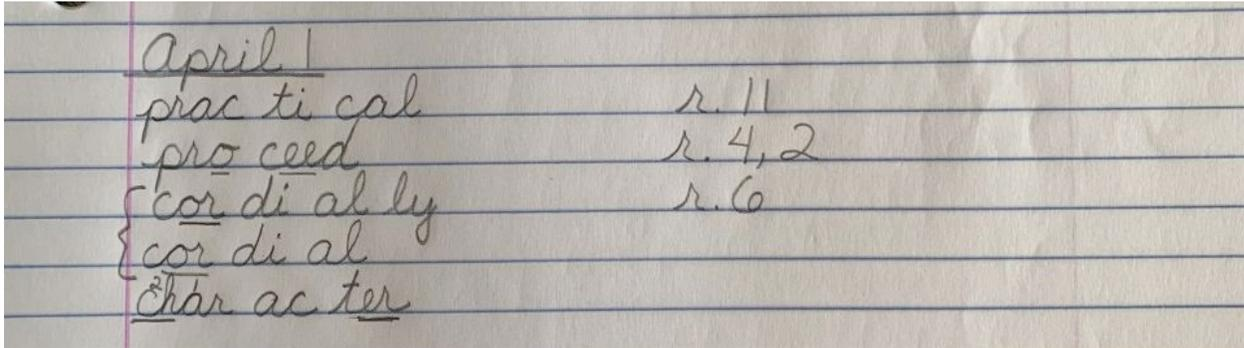 April 1
prac ti cal r. 11
pro ceed r. 4, 2
cor di al ly r. 6
cor di al
²char ac ter